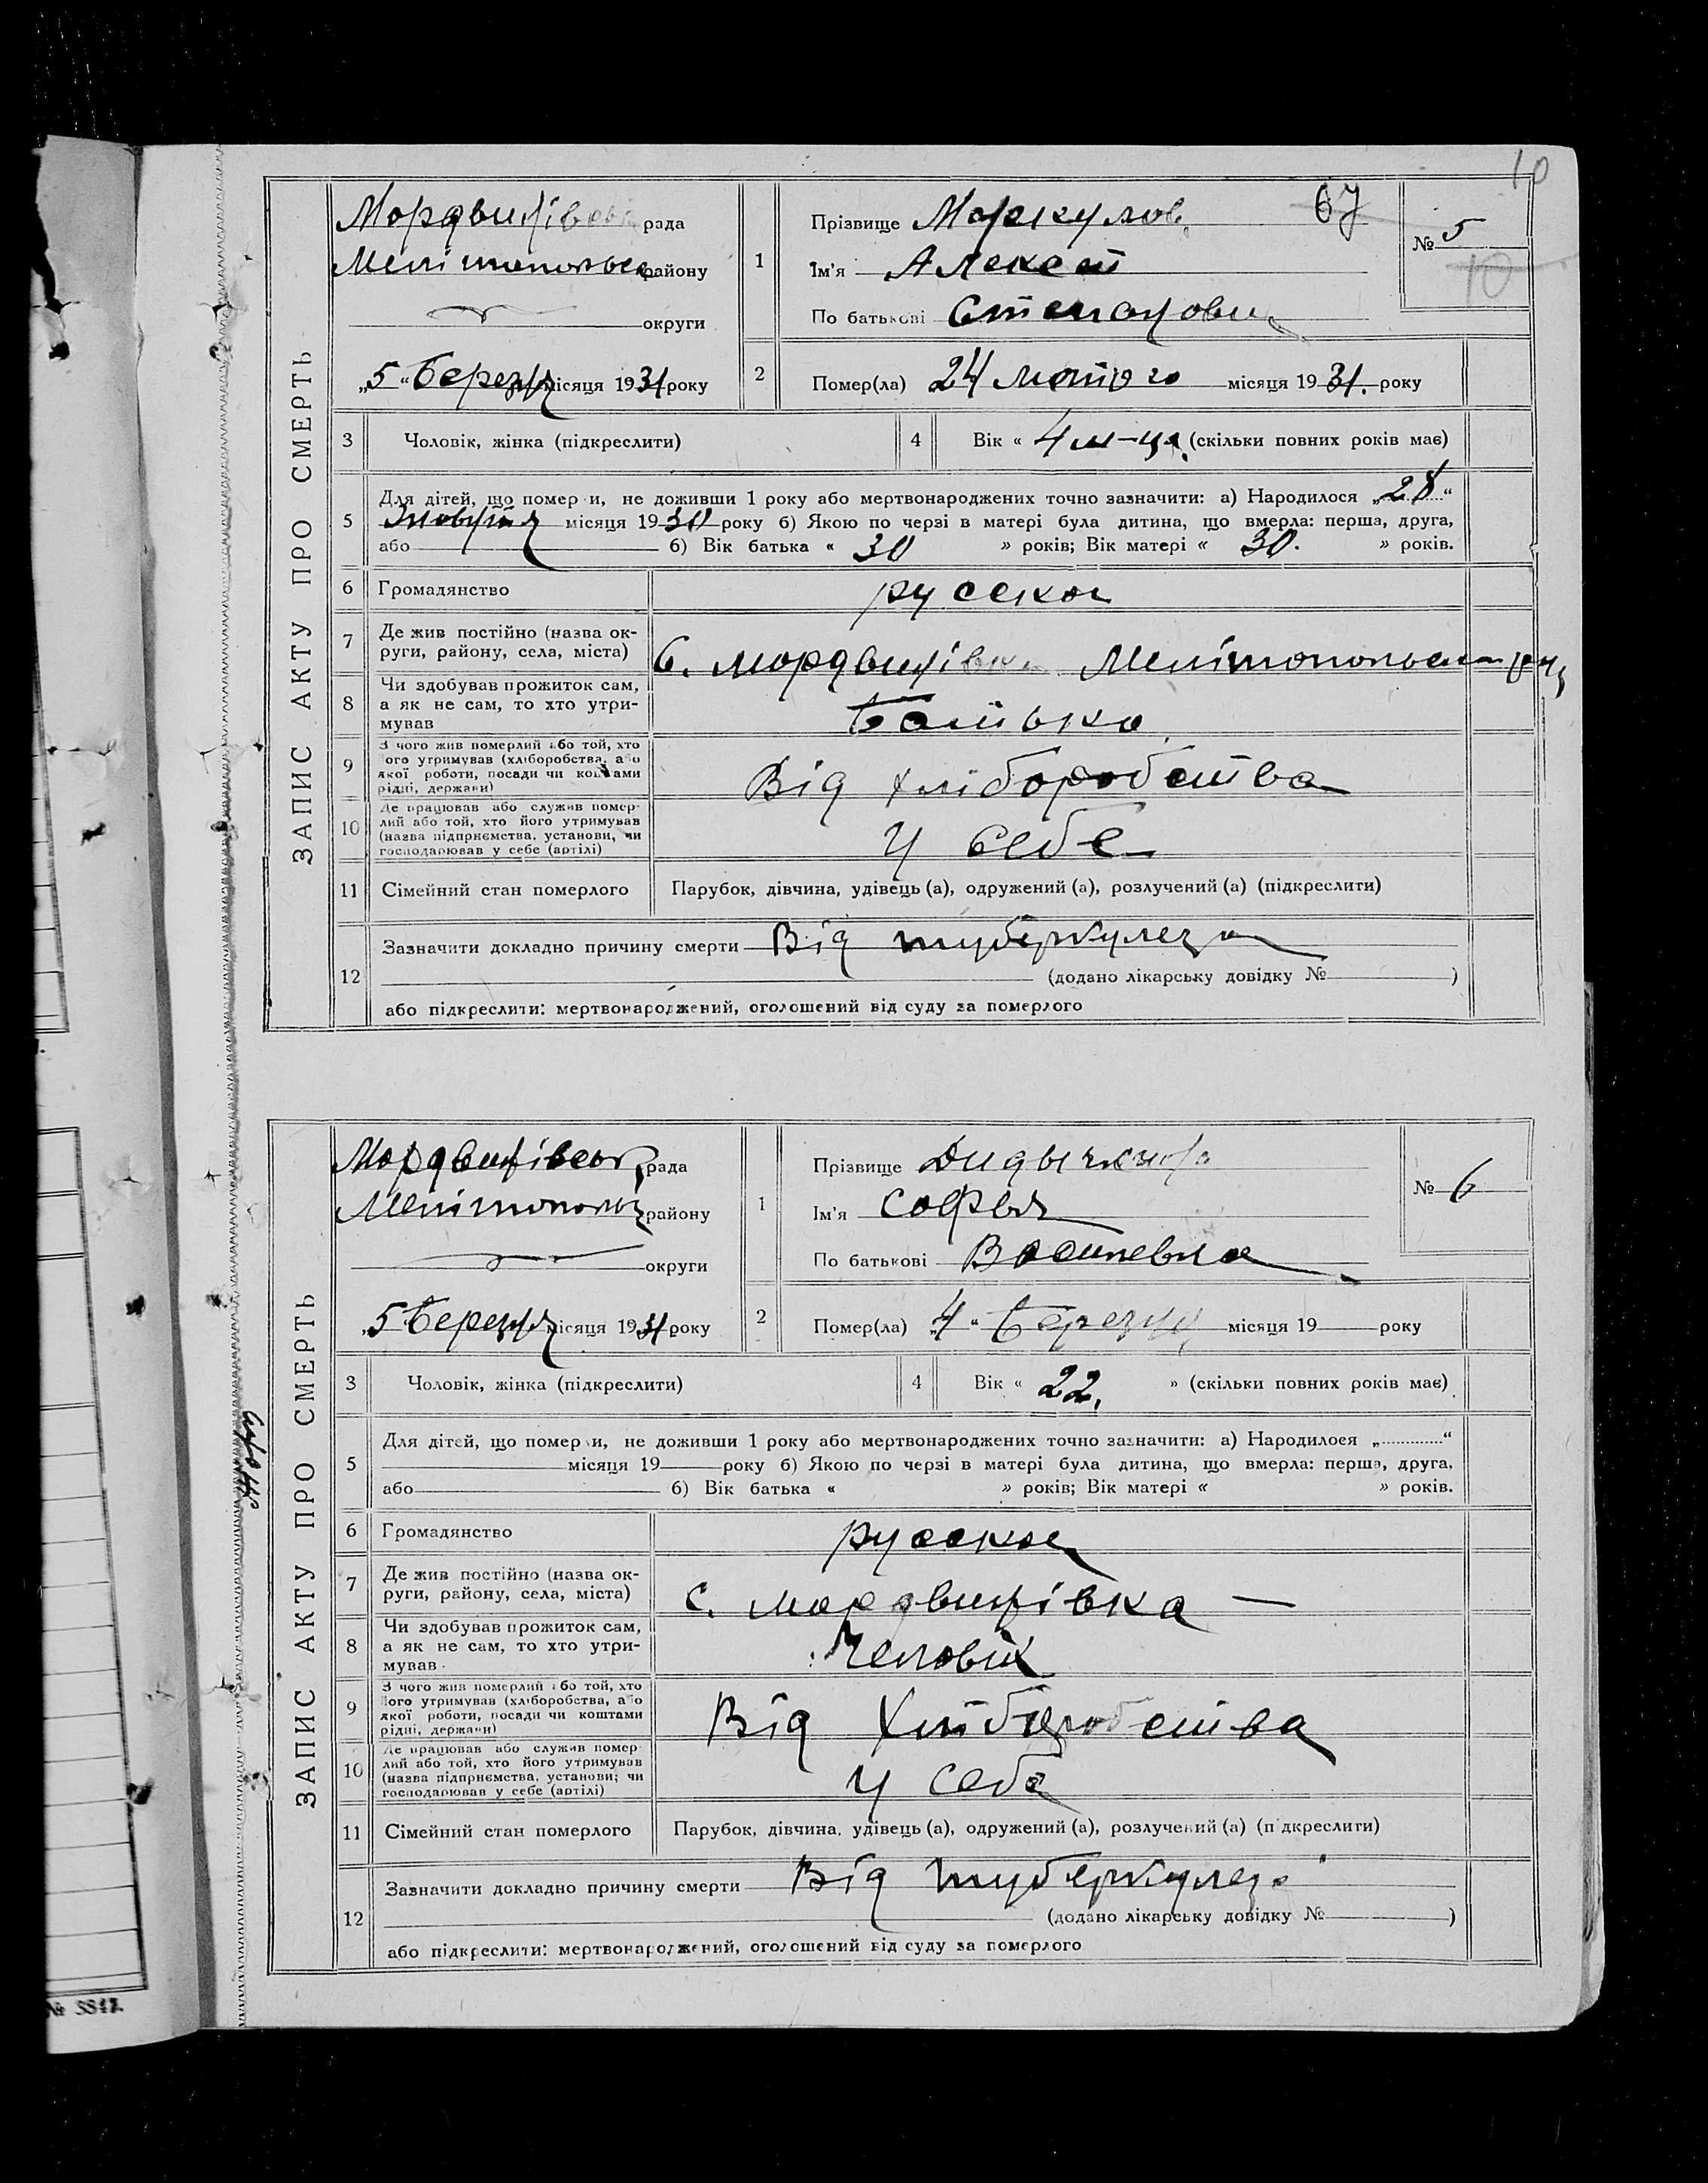 10
ЗАПИС АКТУ ПРО СМЕРТЬ
Мордвинівська рада
Мелітопольськ району
округи
„5“ Березня місяця 1931 року
1
Прізвище Маркулов
67
Ім'я Алексей
По батькові Степанович
№ 5
10
2
Помер(ла) 24 лютого місяця 1931. року
3
Чоловік, жінка (підкреслити)
4
Вік « 4 м-ця (скільки повних років має)
5
Для дітей, що померли, не доживши 1 року або мертвонароджених точно зазначити: а) Народилося „28“
Жовтня місяця 1930 року б) Якою по черзі в матері була дитина, що вмерла: перша, друга,
або б) Вік батька « 30 » років; Вік матері « 30. » років.
6
Громадянство
русское
7
Де жив постійно (назва округи, району, села, міста)
С. Мордвинівка Мелітопольськ
8
Чи здобував прожиток сам,
а як не сам, то хто утри-
мував
Батько
9
З чого жив померлий або той, хто
його утримував (хліборобства, або
якої роботи, посади чи коштами
рідні, держави)
Від хліборобства
10
Де працював або служив помер-
лий або той, хто його утримував
(назва підприємства, установи, чи
господарював у себе (артілі)
У себе
11
Сімейний стан померлого
Парубок, дівчина, удівець (а), одружений (а), розлучений (а) (підкреслити)
12
Зазначити докладно причину смерти Від туберкулеза
(додано лікарську довідку № )
або підкреслити: мертвонароджений, оголошений від суду за померлого
ЗАПИС АКТУ ПРО СМЕРТЬ
Мордвинівськ рада
Мелітопольськ району
округи
„5 Березня місяця 1931 року
1
Прізвище
Ім'я Софья
По батькові Васильевна
№ 6
2
Помер(ла) „4“ Березня місяця 19 року
3
Чоловік, жінка (підкреслити)
4
Вік « 22. » (скільки повних років має)
5
Для дітей, що померли, не доживши 1 року або мертвонароджених точно зазначити: а) Народилося „ “
місяця 19 року б) Якою по черзі в матері була дитина, що вмерла: перша, друга,
або б) Вік батька « » років; Вік матері « » років.
6
Громадянство
русское
7
Де жив постійно (назва ок-
руги, району, села, міста)
С. Мордвинівка —
8
Чи здобував прожиток сам,
а як не сам, то хто утри-
мував
Человік
9
З чого жив померлий або той, хто
його утримував (хліборобства, або
якої роботи, посади чи коштами
рідні, держави)
Від хліборобства
10
Де працював або служив помер-
лий або той, хто його утримував
(назва підприємства, установи; чи
господарював у себе (артілі)
У себе
11
Сімейний стан померлого
Парубок, дівчина, удівець (а), одружений (а), розлучений (а) (підкреслити)
12
Зазначити докладно причину смерти Від туберкулеза
(додано лікарську довідку № )
або підкреслити: мертвонароджений, оголошений від суду за померлого
№ 3847.